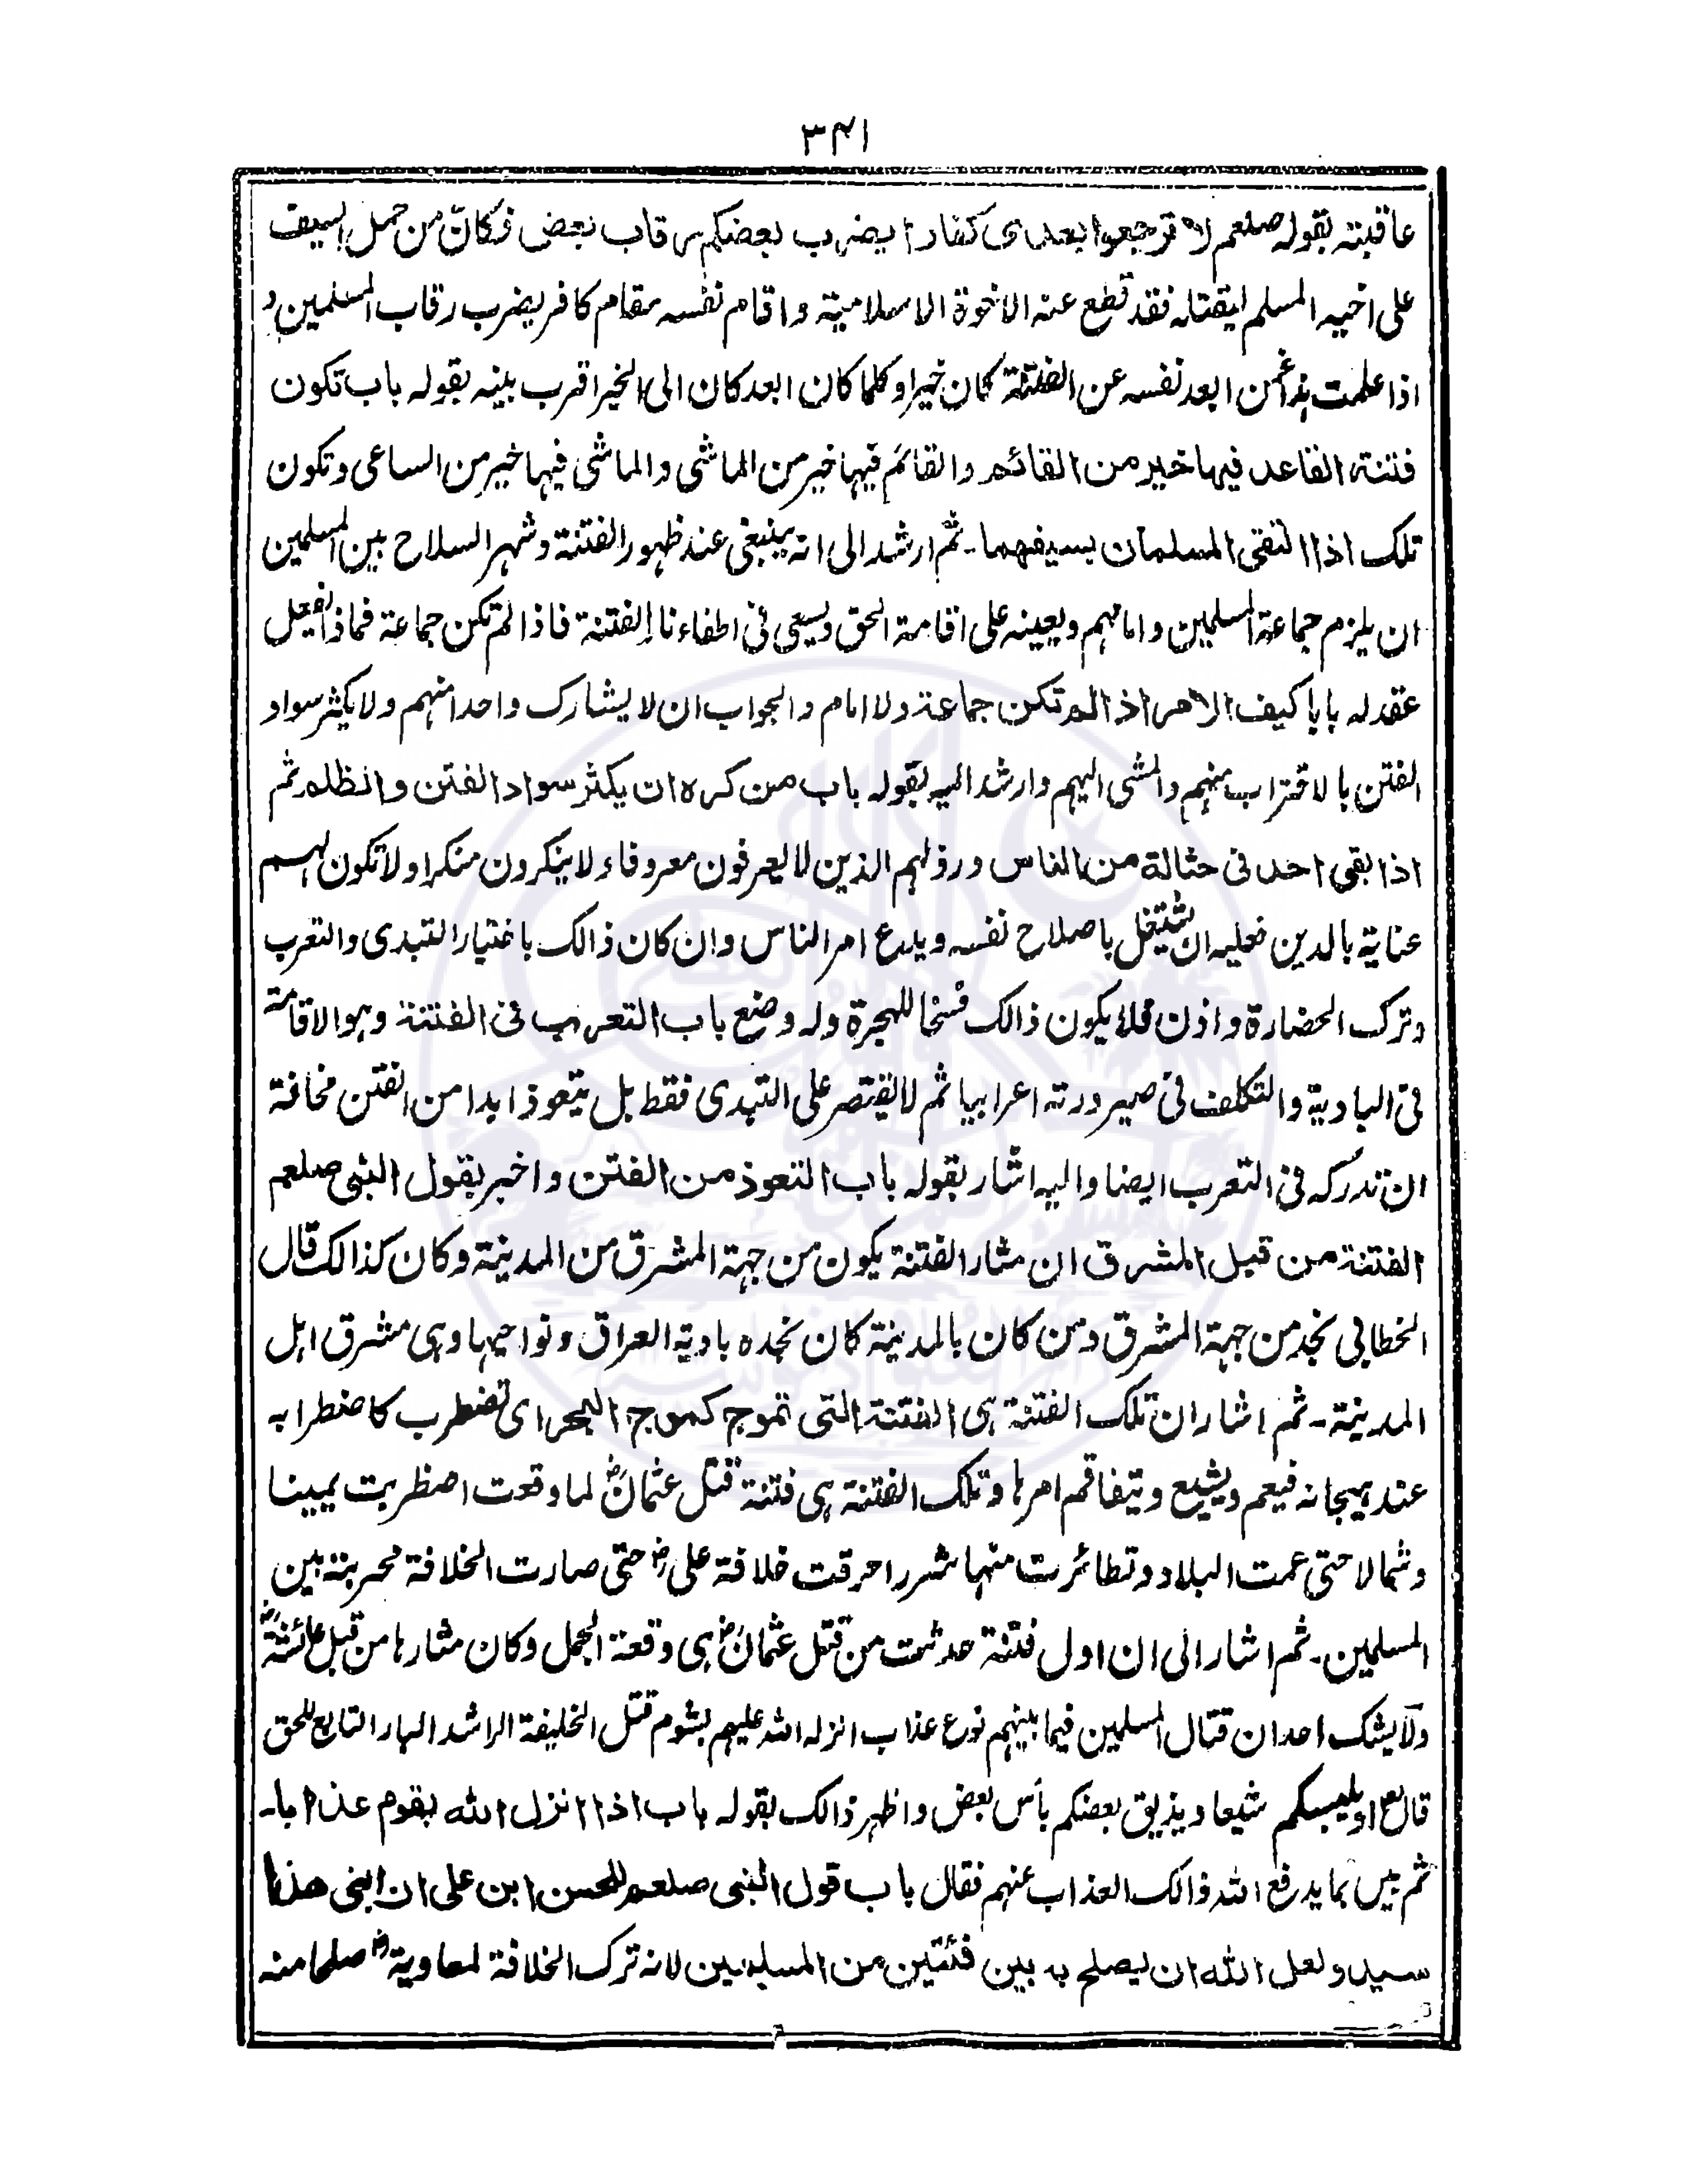 ٣٤١
عاقبته بقوله صلعم لا ترجعوا بعدى كفارا يضرب بعضكم رقاب بعض فكانّ من حمل السيف
على اخيه المسلم ليقتله فقد قطع عنه الاخوة الاسلامية واقام نفسه مقام كافر يضرب رقاب المسلمين و
اذا علمت هذا فمن ابعد نفسه عن الفتنة كان خيرا وكلما كان ابعد كان الى الخير اقرب بينه بقوله باب تكون
فتنة القاعد فيها خير من القائم والقائم فيها خير من الماشى والماشى فيها خير من الساعى وتكون
تلك اذا التقى المسلمان بسيفهما۔ ثم ارشد الى انه ينبغى عند ظهور الفتنة وشهر السلاح بين المسلمين
ان يلزم جماعة المسلمين وامامهم ويعينه على اقامة الحق ويسعى فى اطفاء نار الفتنة فاذا لم تكن جماعة فماذا يفعل
عقد له بابا كيف الامر اذا لم تكن جماعة ولا امام والجواب ان لا يشارك واحدا منهم ولا يكثر سواد
الفتن بالاقتراب منهم والمشى اليهم وارشد اليه بقوله باب من كره ان يكثر سواد الفتن والظلم ثم
اذا بقى احد فى حثالة من الناس ورذلهم الذين لا يعرفون معروفاء لا ينكرون منكرا ولا تكون لهم
عناية بالدين فعليه ان يشتغل باصلاح نفسه ويدع امر الناس وان كان ذالك باختيار التبدى والتعرب
وترك الحضارة واذن فلا يكون ذالك فسخا للهجرة وله وضع باب التعرب فى الفتنة وهو الاقامة
فى البادية والتكلف فى صيرورته اعرابيا ثم لا يقتصر على التبدى فقط بل يتعوذ ابدا من الفتن مخافة
ان تدركه فى التعرب ايضا واليه اشار بقوله باب التعوذ من الفتن واخبر بقول النبى صلعم
الفتنة من قبل المشرق ان مثار الفتنة يكون من جهة المشرق من المدينة وكان كذالك قال
الخطابى نجد من جهة المشرق ومن كان بالمدينة كان نجده بادية العراق ونواحيها وهى مشرق اهل
المدينة۔ ثم اشار ان تلك الفتنة هى الفتنة التى تموج كموج البحر اى تضطرب كاضطرابه
عند هيجانه فيعم ويشيع ويتفاقم امرها وتلك الفتنة هى فتنة قتل عثمانؓ لما وقعت اضطربت يمينا
وشمالا حتى عمت البلاد وتطائرت منها شرر احرقت خلافة علىؓ حتى صارت الخلافة محربة بين
المسلمين۔ ثم اشار الى ان اول فتنة حدثت من قتل عثمانؓ هى وقعة الجمل وكان مثارها من قبل عائشةؓ
ولا يشك احد ان قتال المسلمين فيما بينهم نوع عذاب انزله الله عليهم بشوم قتل الخليفة الراشد البار التابع للحق
قال تعا او يلبسكم شيعا ويذيق بعضكم بأس بعض واظهر ذالك بقوله باب اذا انزل الله بقوم عذابا۔
ثم بين بما يدرفع الله ذالك العذاب عنهم فقال باب قول النبى صلعم للحسن ابن على ان ابنى هذا
سيد ولعل الله ان يصلح به بين فئتين من المسلمين لانه ترك الخلافة لمعاويةؓ صلحا منه